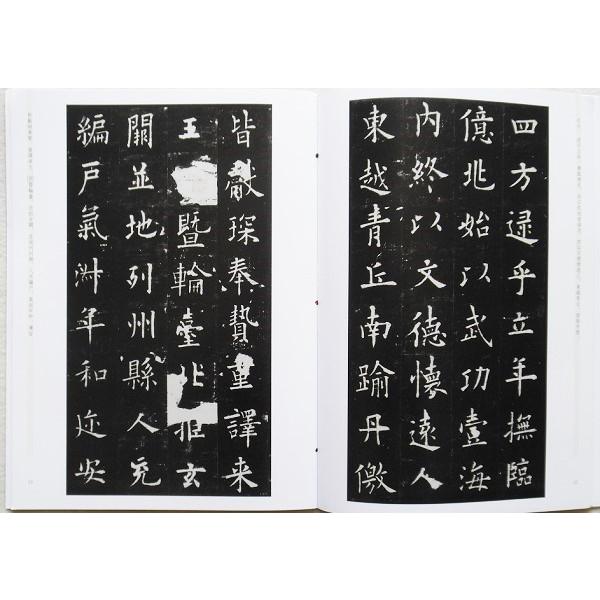 四方逮乎立年撫臨
億兆始以武功壹海
內終以文德懷遠人
東越青丘南踰丹儌
皆獻琛奉贄重譯来
王暨輪臺北拒玄
闕並地列州縣人充
編戶氣淑年和迩安